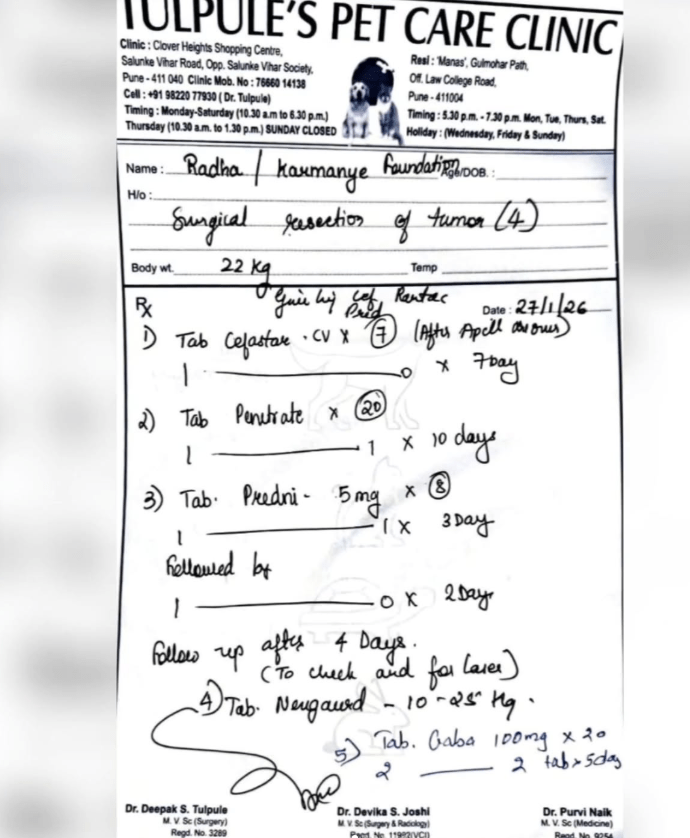 TULPULE'S PET CARE CLINIC
Clinic : Clover Heights Shopping Centre,
Salunke Vihar Road, Opp. Salunke Vihar Society,
Pune - 411 040 Clinic Mob. No : 76660 14138
Cell : +91 98220 77930 ( Dr. Tulpule)
Timing : Monday-Saturday (10.30 a.m to 6.30 p.m.)
Thursday (10.30 a.m. to 1.30 p.m.) SUNDAY CLOSED
Resi : 'Manas', Gulmohar Path,
Off. Law College Road,
Pune - 411004
Timing : 5.30 p.m. - 7.30 p.m. Mon, Tue, Thurs, Sat.
Holiday : (Wednesday, Friday & Sunday)
Name : Radha / Karmanye Foundation Age/DOB. :
H/o :
Surgical resection of tumor (4)
Body wt. 22 Kg Temp
Rx
Rantac
Pred
Date : 27/1/26
1) Tab Cefastar - CV x 7 (After
1 0 x 7 Day
2) Tab Penetrate x 20
1 1 x 10 days
3) Tab. Predni - 5 mg x 8
1 1 x 3 Day
Followed by
1 0 x 2 Days
Follow up after 4 Days.
(To check and for Laser)
4) Tab. - 10-25
5) Tab. Gaba 100mg x 20
2 2 tab x 5 day
Dr. Deepak S. Tulpule
M. V. Sc (Surgery)
Regd. No. 3289
Dr. Devika S. Joshi
M. V. Sc (Surgery & Radiology)
Dr. Purvi Naik
M. V. Sc (Medicine)